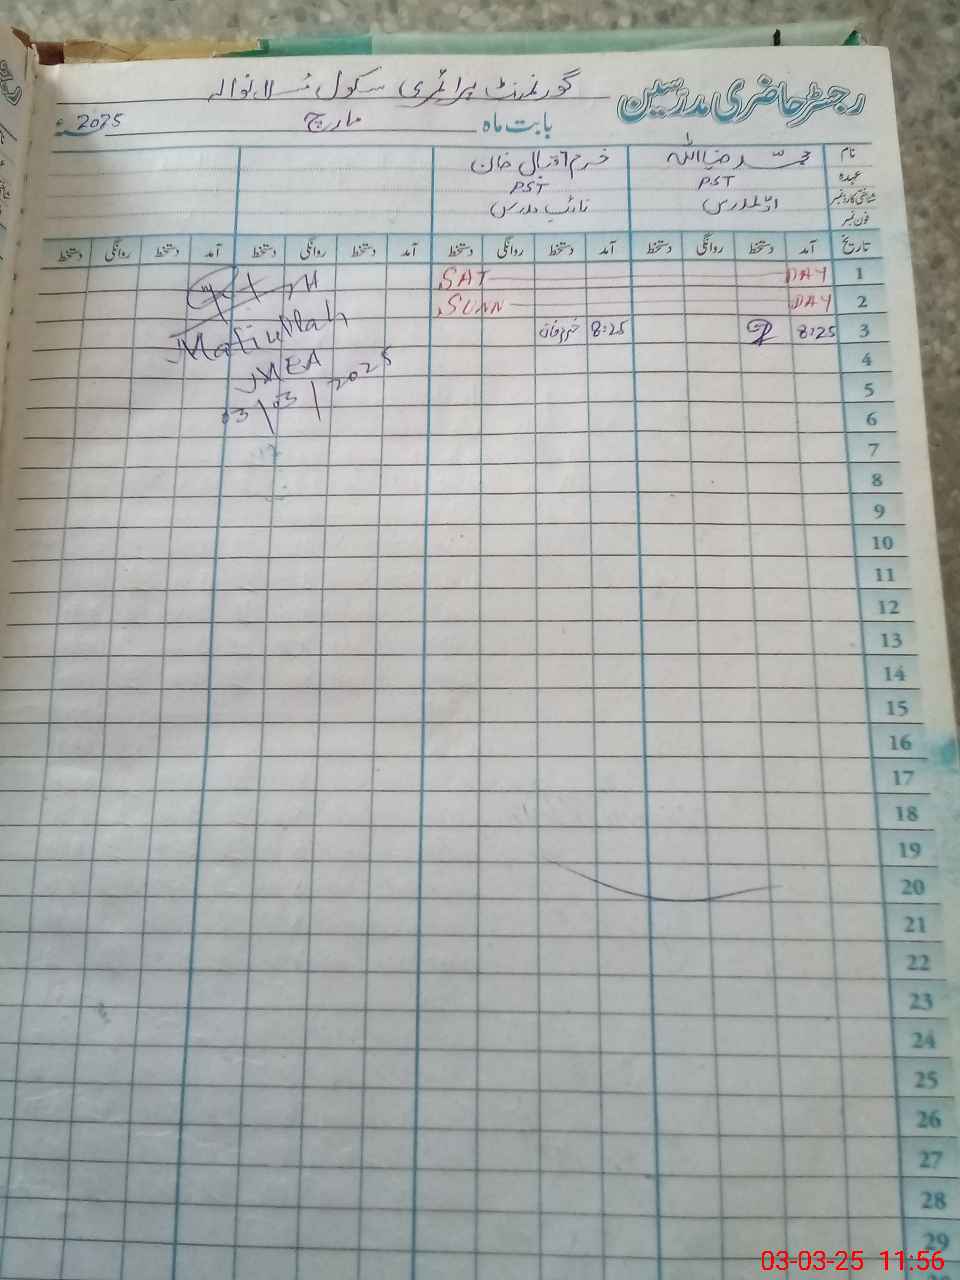 رجسٹر حاضری مدرسین
گورنمنٹ پرائمری سکول
بابت ماہ مارچ 2025ء
نام محمد رضا اللہ خرم اقبال خان
عہدہ PST PST
شناختی کارڈ نمبر اول مدرس نائب مدرس
فون نمبر
تاریخ آمد دستخط روانگی دستخط آمد دستخط روانگی دستخط آمد دستخط روانگی دستخط آمد دستخط روانگی دستخط
1 DAY SAT
2 DAY SUNN
3 8:25 8:25 خرم خان
Matiullah
MEA
03/03/2025
4
5
6
7
8
9
10
11
12
13
14
15
16
17
18
19
20
21
22
23
24
25
26
27
28
29
03-03-25 11:56